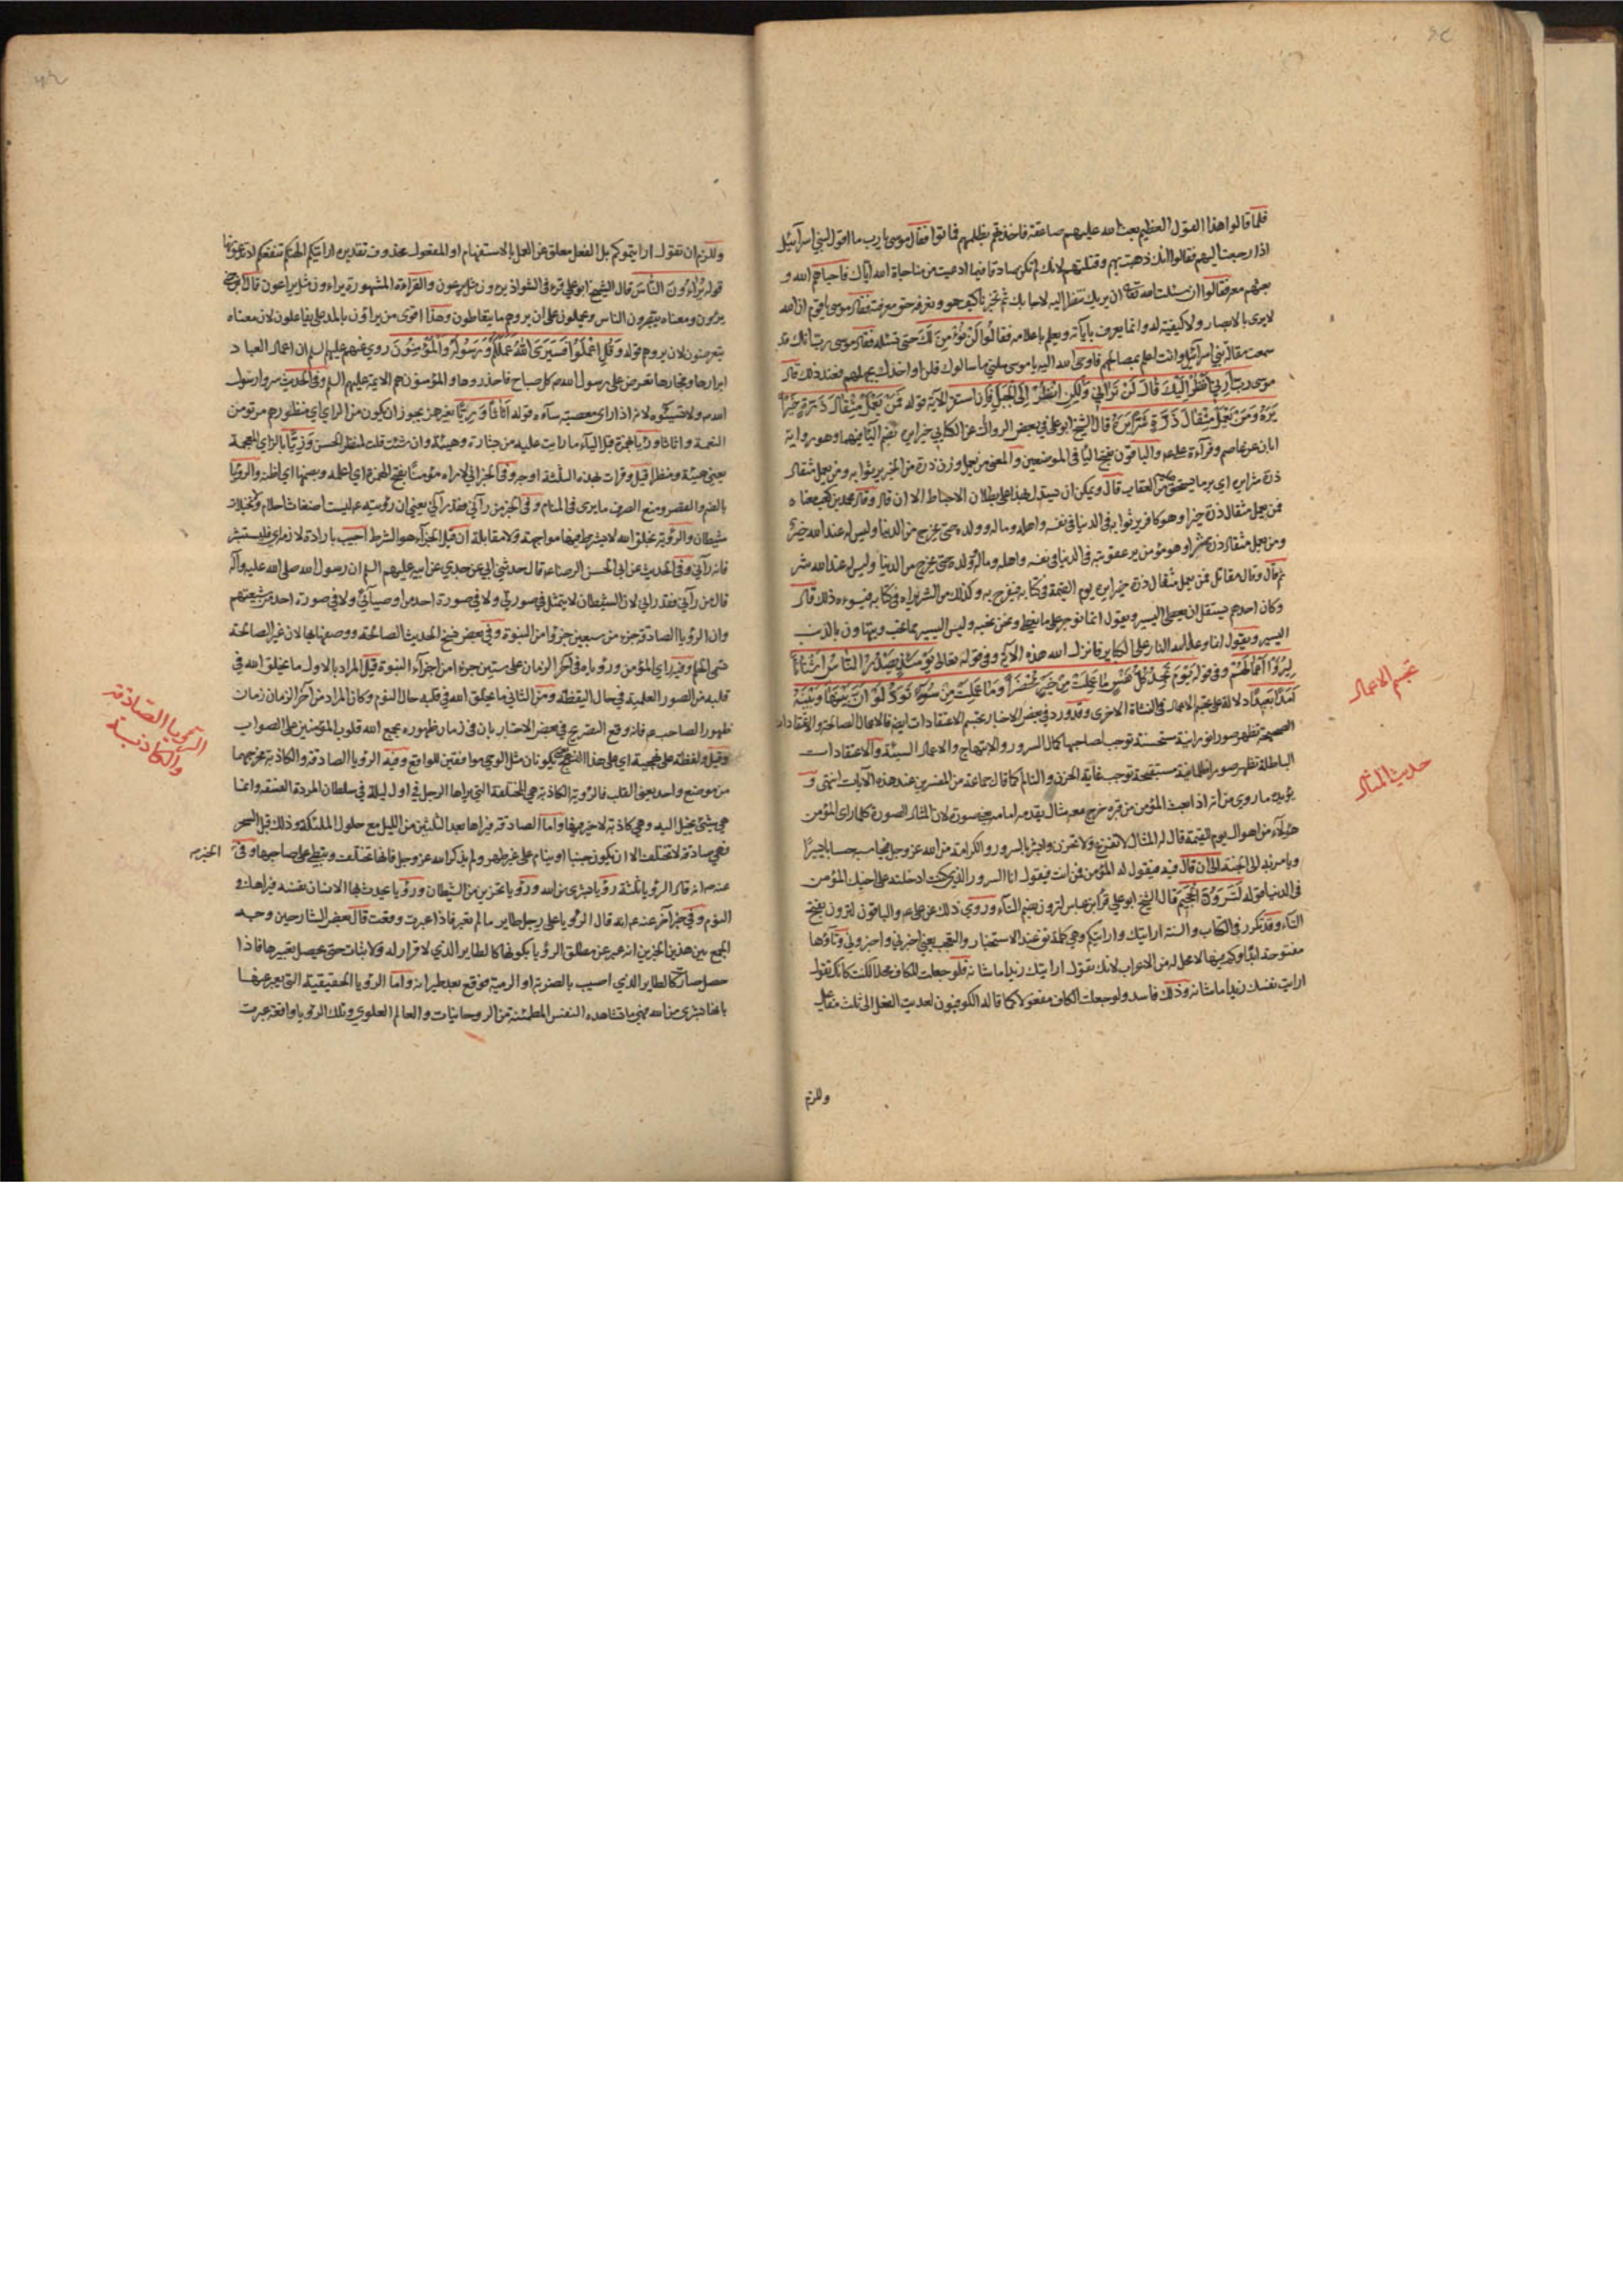 فلما قالوا هذا القول العظيم بعث الله عليهم صاعقة فاخذتهم بظلمهم فماتوا فقال موسى يا رب ما اقول لبني اسرآئيل
اذا رجعت اليهم فقالوا انك ذهبت بهم وقتلتهم لانك لم تكن صادقا فيما ادعيت من مناجاة الله اياك فاحياهم الله و
بعثهم معه فقالوا ان سئلت الله تعالى ان يريك تنظر اليه لاجابك ثم تخبرنا كيف هو ونعرفه حق معرفته فقال موسى يا قوم ان الله
لا يرى بالابصار ولا كيفية له وانما يعرف بآياته ويعلم باعلامه فقالوا لن نؤمن لك حتى تسئله فقال موسى رب انك قد
سمعت مقالة بني اسرآئيل وانت اعلم بصلاحهم فاوحى الله اليه يا موسى سلني ما سالوك فلن اواخذك بجهلهم فعند ذلك قال
موسى رب ارني انظر اليك قال لن تراني ولكن انظر الى الجبل فان استقر الآية قوله فمن يعمل مثقال ذرة خيرا
يره ومن يعمل مثقال ذرة شرا يره قال الشيخ ابو علي في بعض الروايات عن الكسائي خيرا يره بضم اليا فيهما وهو رواية
ابان عن عاصم وقرآءة علي ع والباقون بفتح اليا في الموضعين والمعنى من يعمل وزن ذرة من الخير ير ثوابه ومن يعمل مثقال
ذرة شرا يره اي ير ما يستحق من العقاب قال ويمكن ان يستدل بهذا على بطلان الاحباط الا ان قال وقال محمد بن كعب معناه
فمن يعمل مثقال ذرة خيرا وهو كافر ير ثوابه في الدنيا في نفسه واهله وماله وولده حتى يخرج من الدنيا وليس له عند الله خير
ومن يعمل مثقال ذرة شرا وهو مؤمن ير عقوبته في الدنيا في نفسه واهله وماله وولده حتى يخرج من الدنيا وليس له عند الله شر
ثم قال وقال مقاتل فمن يعمل مثقال ذرة خيرا يره يوم القيمة في كتابه فيفرح به وكذلك من الشر يراه في كتابه فيسوءه ذلك قال
وكان احدهم يستقل ان يعطي اليسير ويقول انما نوجر على ما نعطي ونحن نحبه وليس اليسير مما نحب ويتهاون بالذنب
اليسير ويقول انما وعد الله النار على الكبائر فانزل الله هذه الآية وفي قوله تعالى يومئذ يصدر الناس اشتاتا
ليروا اعمالهم وفي قوله يوم تجد كل نفس ما عملت من خير محضرا وما عملت من سوء تود لو ان بينها وبينه
امدا بعيدا دلالة على تجسم الاعمال في النشاة الاخرى وقد ورد في بعض الاخبار تجسم الاعتقادات ايضا فالاعمال الصالحة والاعتقادات
الصحيحة تظهر صورا نورانية مستحسنة توجب لصاحبها كمال السرور والابتهاج والاعمال السيئة والاعتقادات
الباطلة تظهر صورا ظلمانية مستقبحة توجب غاية الحزن والتالم كما قال جماعة من المفسرين عند هذه الآيات انتهى و
يؤيده ما روي من انه اذا بعث المؤمن من قبره خرج معه مثال يقدمه امامه يعني صورة لان المثال الصورة كلما راى المؤمن
هولا من اهوال يوم القيمة قال له المثال لا تفزع ولا تحزن وابشر بالسرور والكرامة من الله عز وجل فيحاسب حسابا يسيرا
ويامر به الى الجنة الى ان قال فيه فيقول له المؤمن فمن انت فيقول انا السرور الذي كنت ادخلته على اخيك المؤمن
في الدنيا قوله لترون الجحيم قال الشيخ ابو علي قرأ ابن عباس لترون بضم التاء وروي ذلك عن علي ع والباقون لترون بفتح
التاء وقد تكرر في الكتاب والسنة ارايتك وارايتكم وهي كلمة تق عند الاستخبار والتعجب يعني اخبرني واخبروني وتاؤها
مفتوحة ابدا وكم فيها لا محل له من الاعراب لانك تقول ارايتك زيدا ما شانه فلو جعلت للكاف محلا لكنت كانك تقول
ارايت نفسك زيدا ما شانه وذلك فاسد ولو جعلت الكاف مفعولا كما قاله الكوفيون لعديت الفعل الى ثلث مفاعيل
وللزم
تجسم الاعمال
حديث المثال
وللزم ان تقول ارايتموكم بل الفعل معلق عن العمل بالاستفهام او المفعول محذوف تقديره ارايتكم آلهتكم تنفعكم اذ تدعونها
قوله يراءون الناس قال الشيخ ابو علي قرء في الشواذ يرءون مثل يرعون والقراءة المشهورة يراءون مثل يراعون قال ابن جني
يرءون ومعناه يبصرون الناس ويحملون على ان يروهم ما يتعاطون وهذا اقوى من يراؤن بالمد على يفاعلون لان معناه
يتعرضون لان يروهم قوله وقل اعملوا فسيرى الله عملكم ورسوله والمؤمنون روي عنهم عليهم السلم ان اعمال العباد
ابرارها وفجارها تعرض على رسول الله ص كل صباح فاحذروها والمؤمنون هم الائمة عليهم السلم وفي الحديث سروا رسول
الله ص ولا تسيئوه لانه اذا راى معصية ساءه قوله اثاثا وريا بغير همز يجوز ان يكون من الراي اي منظورهم مرتو من
النعمة واثاثا ورءيا بهمزة قبل الياء ما رايت عليه من شارة وهيئة وان شئت قلت المنظر الحسن وزيا بالزاي المعجمة
يعني هيئة ومنظرا قيل وقرات بهذه الثلثة اوجه وفي الخبر اني لاراه مؤمنا بفتح الهمزة اي اعلمه وبضمها اي اظنه والرؤيا
بالضم والقصر ومنع الصرف ما يرى في المنام وفي الخبر من رآني فقد رآني يعني ان رؤيته ع ليست اضغاث احلام وتخيلات
شيطان والرؤية بخلق الله لا يشترط فيها مواجهة ولا مقابلة ان قيل الجزآء هو الشرط اجيب بارادة لازمه اي فليستبشر
فانه رآني وفي الحديث عن ابي الحسن الرضا ع قال حدثني ابي عن جدي عن ابيه عليهم السلم ان رسول الله صلى الله عليه وآله
قال من رآني فقد راني لان الشيطان لا يتمثل في صورتي ولا في صورة احد من اوصيائي ولا في صورة احد من شيعتهم
وان الرؤيا الصادقة جزء من سبعين جزؤا من النبوة وفي بعض نسخ الحديث الصالحة ووصفها بها لان غير الصالحة
تسمى الحلم وفيه راي المؤمن ورؤياه في آخر الزمان على ستين جزءا من اجزآء النبوة قيل المراد بالاول ما يخلق الله في
قلبه من الصور العلمية في حال اليقظة ومن الثاني ما يخلق الله في قلبه حال النوم وكان المراد من آخر الزمان زمان
ظهور الصاحب ع فانه وقع التصريح في بعض الاخبار بان في زمان ظهوره يجمع الله قلوب المؤمنين على الصواب
وقيل ولفظة على نهجية اي على هذا النهج يكونان مثل الوحي موافقين للواقع وفيه الرؤيا الصادقة والكاذبة مخرجهما
من موضع واحد يعني القلب فالرؤية الكاذبة هي المختلفة التي يراها الرجل في اول ليلة في سلطان المردة الفسقة وانما
هي شئ يخيل اليه وهي كاذبة لا خير فيها واما الصادقة فيراها بعد الثلثين من الليل مع حلول الملئكة وذلك قبل السحر
فهي صادقة لا تختلف الا ان يكون جنبا او ينام على غير طهر ولم يذكر الله عز وجل فانها تختلف وتبطئ على صاحبها وفي
الخبر
عنه ص انه قال الرؤيا ثلثة رؤيا بشرى من الله ورؤيا تحزين من الشيطان ورؤيا يحدث بها الانسان نفسه فيراها في
النوم وفي خبر آخر عنه ع انه قال الرؤيا على رجل طاير ما لم يعبر فاذا عبرت وقعت قال بعض الشارحين وجه
الجمع بين هذين الخبرين انه عبر عن مطلق الرؤيا بكونها كالطاير الذي لا قرار له ولا ثبات حتى يحصل تعبيرها فاذا
حصل صار كالطاير الذي اصيب بالضربة او الرمية فوقع بعد طيرانه واما الرؤيا الحقيقية التي يعبر عنها
بانها بشرى من الله فهي ما تشاهده النفس المطمئنة من الروحانيات والعالم العلوي وتلك الرؤيا واقعة عبرت
الرؤيا الصادقة
والكاذبة